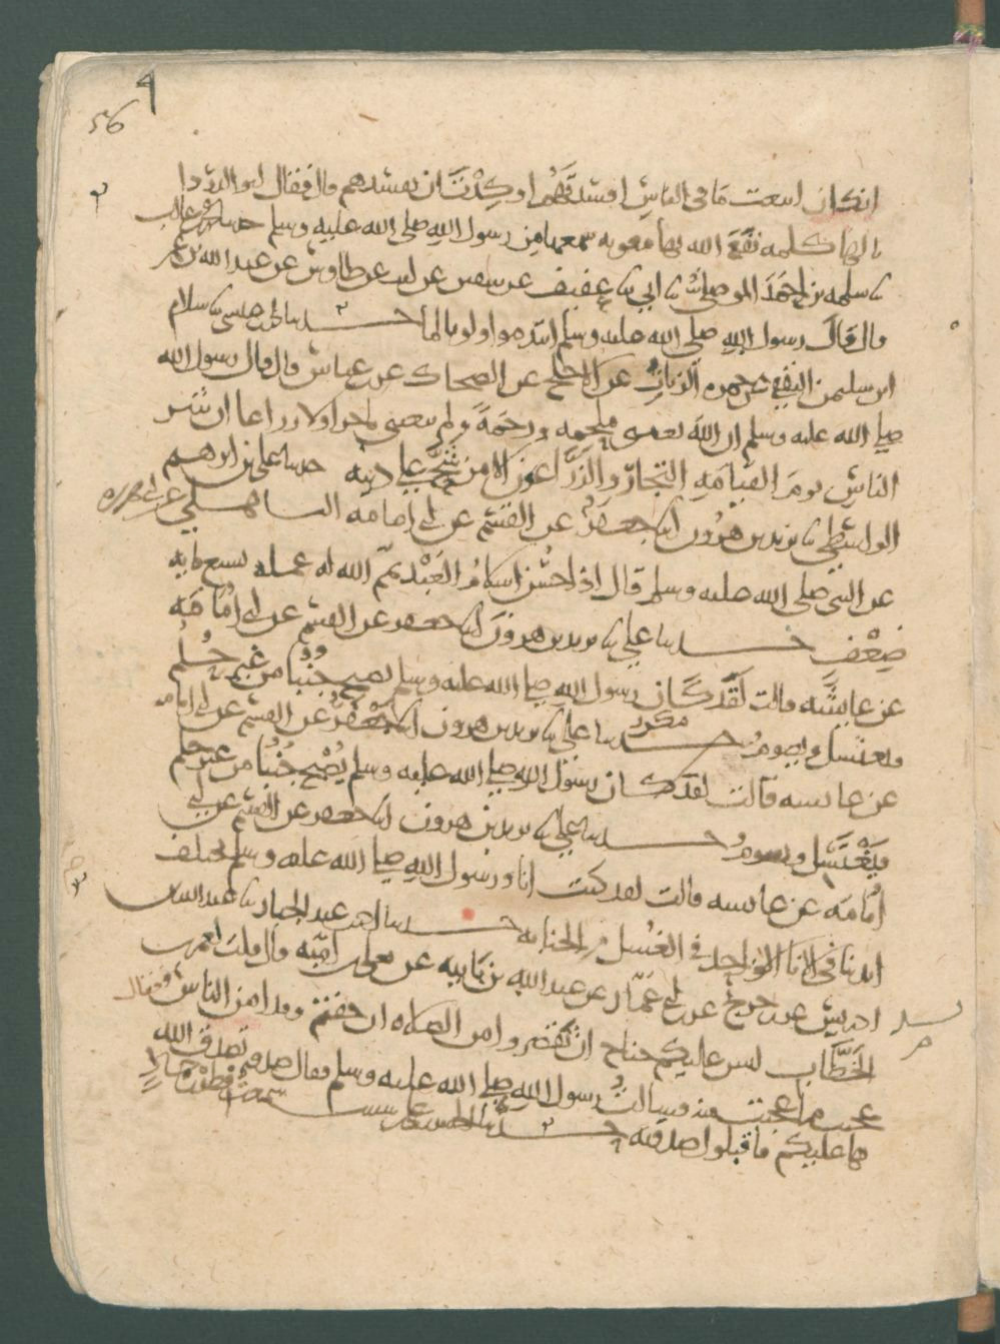 انك ان اتبعت ما في الناس افسدتهم او كدت ان تفسدهم قال فقال ابو الدردا
كلمه نفع الله بها معويه سمعها من رسول الله صلى الله عليه وسلم حدثنا
سلمه بن احمد الموصلي عفيف عن عن ليث عن طاوس عن عبد الله بن عمر
قال قال رسول الله صلى الله عليه وسلم حدثنا سلام
ابن سليمن الثقفي عن حمزه الزيات عن الاجلح عن الضحاك عن بن عباس قال قال رسول الله
صلى الله عليه وسلم ان الله بعثني ملحمه ورحمة ولم يبعثني تاجرا ولا زراعا ان شر
الناس يوم القيامة التجار والزراعون الا من شح على دينه حدثنا علي بن ابرهيم
الواسطي يزيد بن هرون جعفر عن القسم عن ابي امامه الباهلي عن ابي هريره
عن النبي صلى الله عليه وسلم قال اذا احسن اسلام العبد تمم الله له عمله سبع مايه
ضعف حدثنا علي يزيد بن هرون جعفر عن القسم عن ابي امامه
عن عايشه قالت لقد كان رسول الله صلى الله عليه وسلم يصبح جنبا من غير حلم
ويغتسل ويصوم مكرر حدثنا علي يزيد بن هرون جعفر عن القسم عن ابي امامه
عن عايشه قالت لقد كان رسول الله صلى الله عليه وسلم يصبح جنبا من غير حلم
فيغتسل ويصوم حدثنا علي يزيد بن هرون جعفر عن القسم عن ابي
امامه عن عايشه قالت لقد كنت انا ورسول الله صلى الله عليه وسلم تختلف
ايدنا في الانا الواحد في الغسل من الجنابه حدثنا احمد بن عبد الجبار عبد الله بن
ادريس عن بن جريج عن ابن ابي عمار عن عبد الله بن بابيه عن يعلى بن اميه قال قلت لعمر بن
الخطاب ليس عليكم جناح ان تقصروا من الصلاه ان خفتم وقد امن الناس فقال
عجبت مما عجبت منه فسالت رسول الله صلى الله عليه وسلم فقال صدقه تصدق الله
بها عليكم فاقبلوا صدقته حدثنا